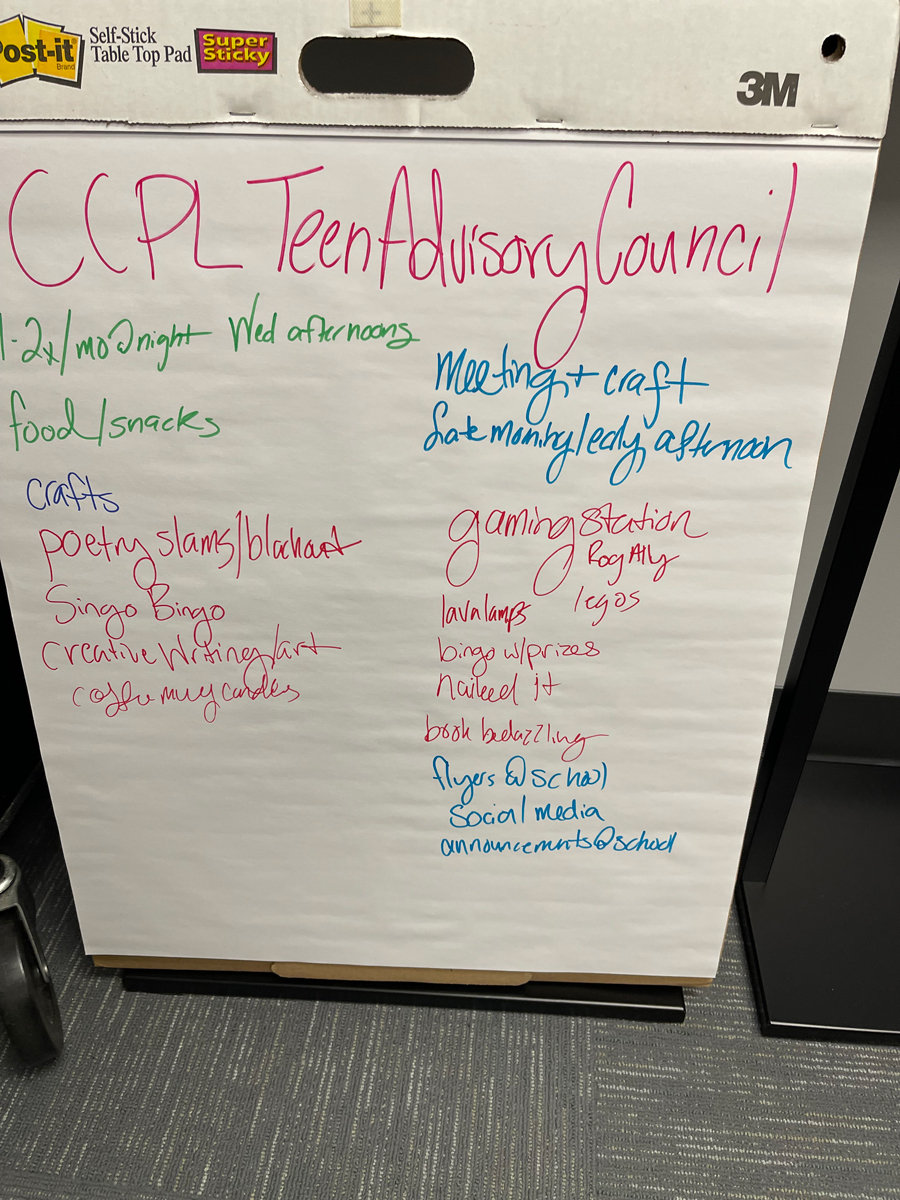 Post-it
Brand
Self-Stick
Table Top Pad
Super
Sticky
3M
CCPL Teen Advisory Council
1-2x/mo @ night Wed afternoons
food/snacks
crafts
poetry slams/blackout
Singo Bingo
creative writing/art
coffee mug candles
Meeting + craft
Late morning/early afternoon
gaming station
Rog Ally
lava lamps
legos
bingo w/prizes
nailed it
book bedazzling
flyers @ school
social media
announcements @ school